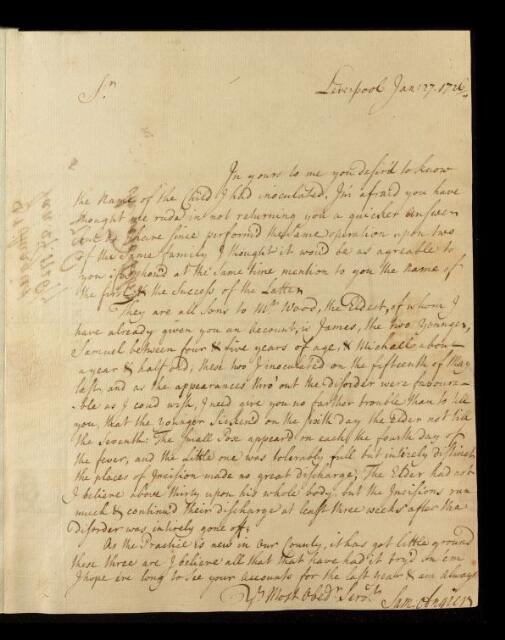 Sr
Liverpool Jan: 27. 1726/7
In yours to me you desir'd to know
the Name of the Child I had inoculated. I'm afraid you have
thought me rude in not returning you a quicker Answer
But as I have since perform'd the same operation upon two
of the same family, I thought it wou'd be as agreeable to
you if I shou'd at the same time mention to you the name of
the first & the Success of the Latter
They are all Sons to Mr. Wood, the Eldest, of whom I
have already given you an Account, is James, the two Younger,
Samuel between four & five years of age, & Michaell about
a year & half old; these two I inoculated on the fifteenth of May
last, and as the appearances thro' out the disorder were favoura-
-ble as I cou'd wish, I need give you no farther trouble than to tell
you, that the Younger Sicken'd on the sixth day the Elder not till
the Seventh: The Small Pox appear'd on each the fourth day of
the fever, and the Little one was tolerably full but intirely distinct
the places of Incision made no great discharge; The Elder had not
I believe above thirty upon his whole body, but the Incisions run
much & continued their discharge at least three weeks after the
disorder was intirely gone off;
As the Practice is new in our County, it has got little ground
these three are I believe all that have had it try'd on 'em
I hope ere long to see your Accounts for the last Year & am always
Yr. Most Obedt. Servt.
Sam: Angier